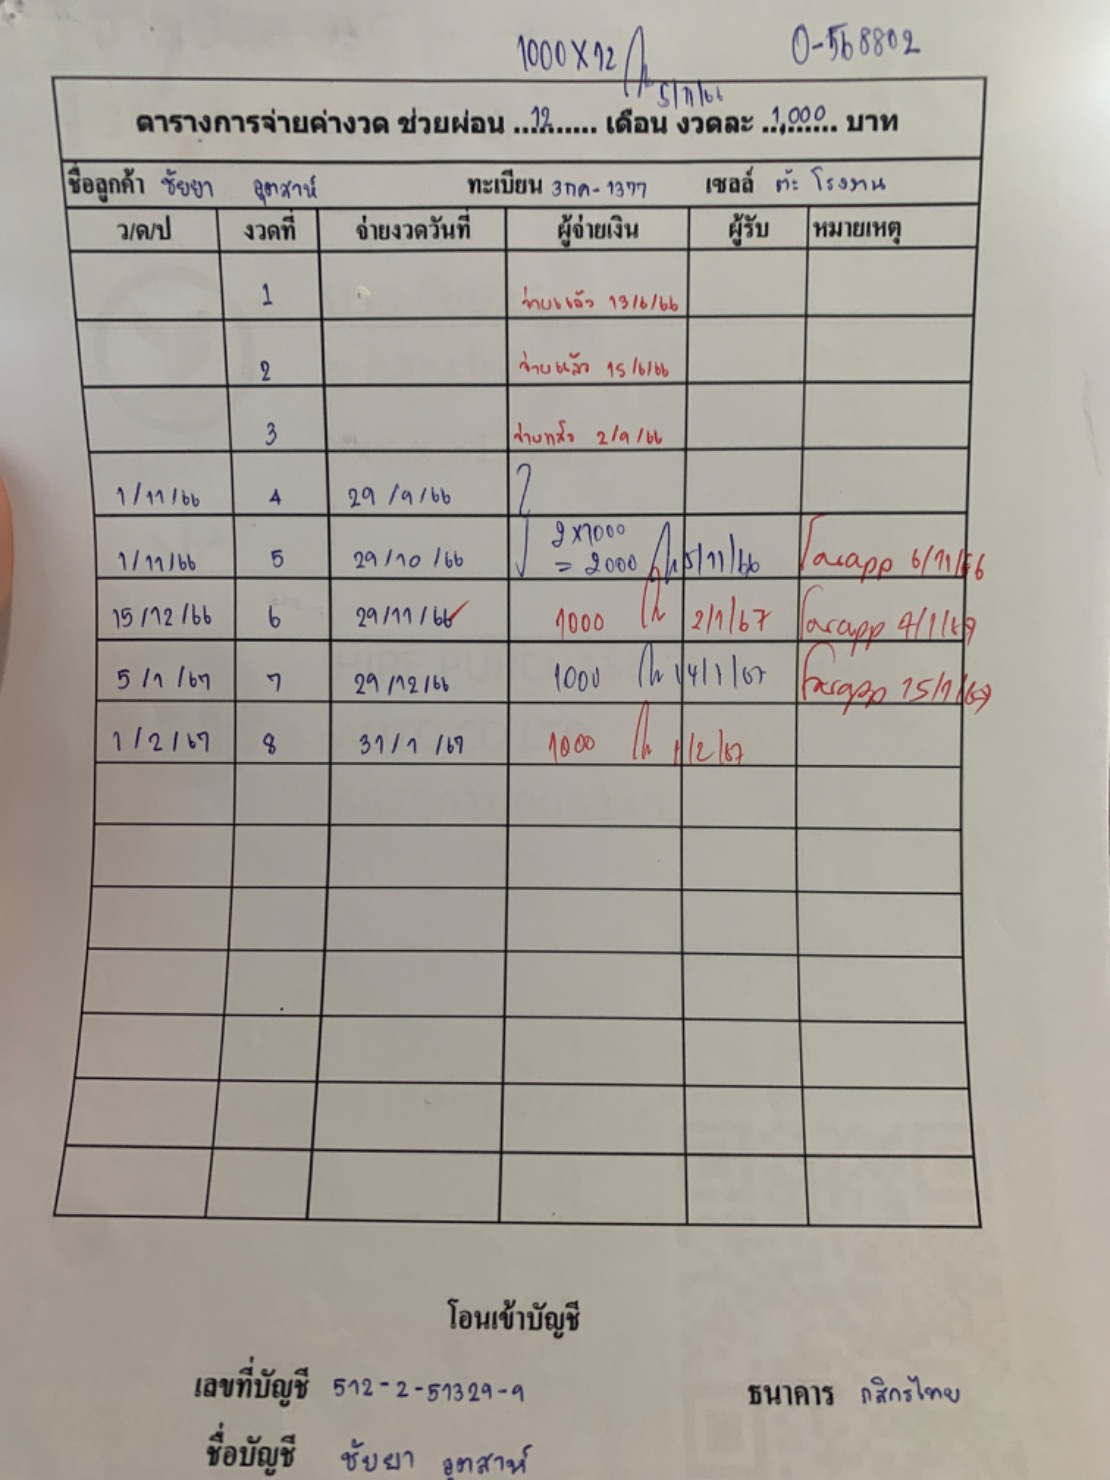 1000 X 12
5/11/66
0-568802
ตารางการจ่ายค่างวด ช่วยผ่อน ...12... เดือน งวดละ ..1,000.. บาท
ชื่อลูกค้า ชัยยา อุตสาห์ ทะเบียน 3กค-1377 เซลล์ ต๊ะ โรงงาน
ว/ด/ป งวดที่ จ่ายงวดวันที่ ผู้จ่ายเงิน ผู้รับ หมายเหตุ
1 จ่ายแล้ว 13/6/66
2 จ่ายแล้ว 15/6/66
3 จ่ายแล้ว 2/9/66
1/11/66 4 29/9/66
1/11/66 5 29/10/66 2x1000 = 2000 5/11/66 6/11/66
15/12/66 6 29/11/66 1000 2/1/67 4/1/67
5/1/67 7 29/12/66 1000 14/1/67 15/1/67
1/2/67 8 31/1/67 1000 1/2/67
โอนเข้าบัญชี
เลขที่บัญชี 512-2-51329-9 ธนาคาร กสิกรไทย
ชื่อบัญชี ชัยยา อุตสาห์